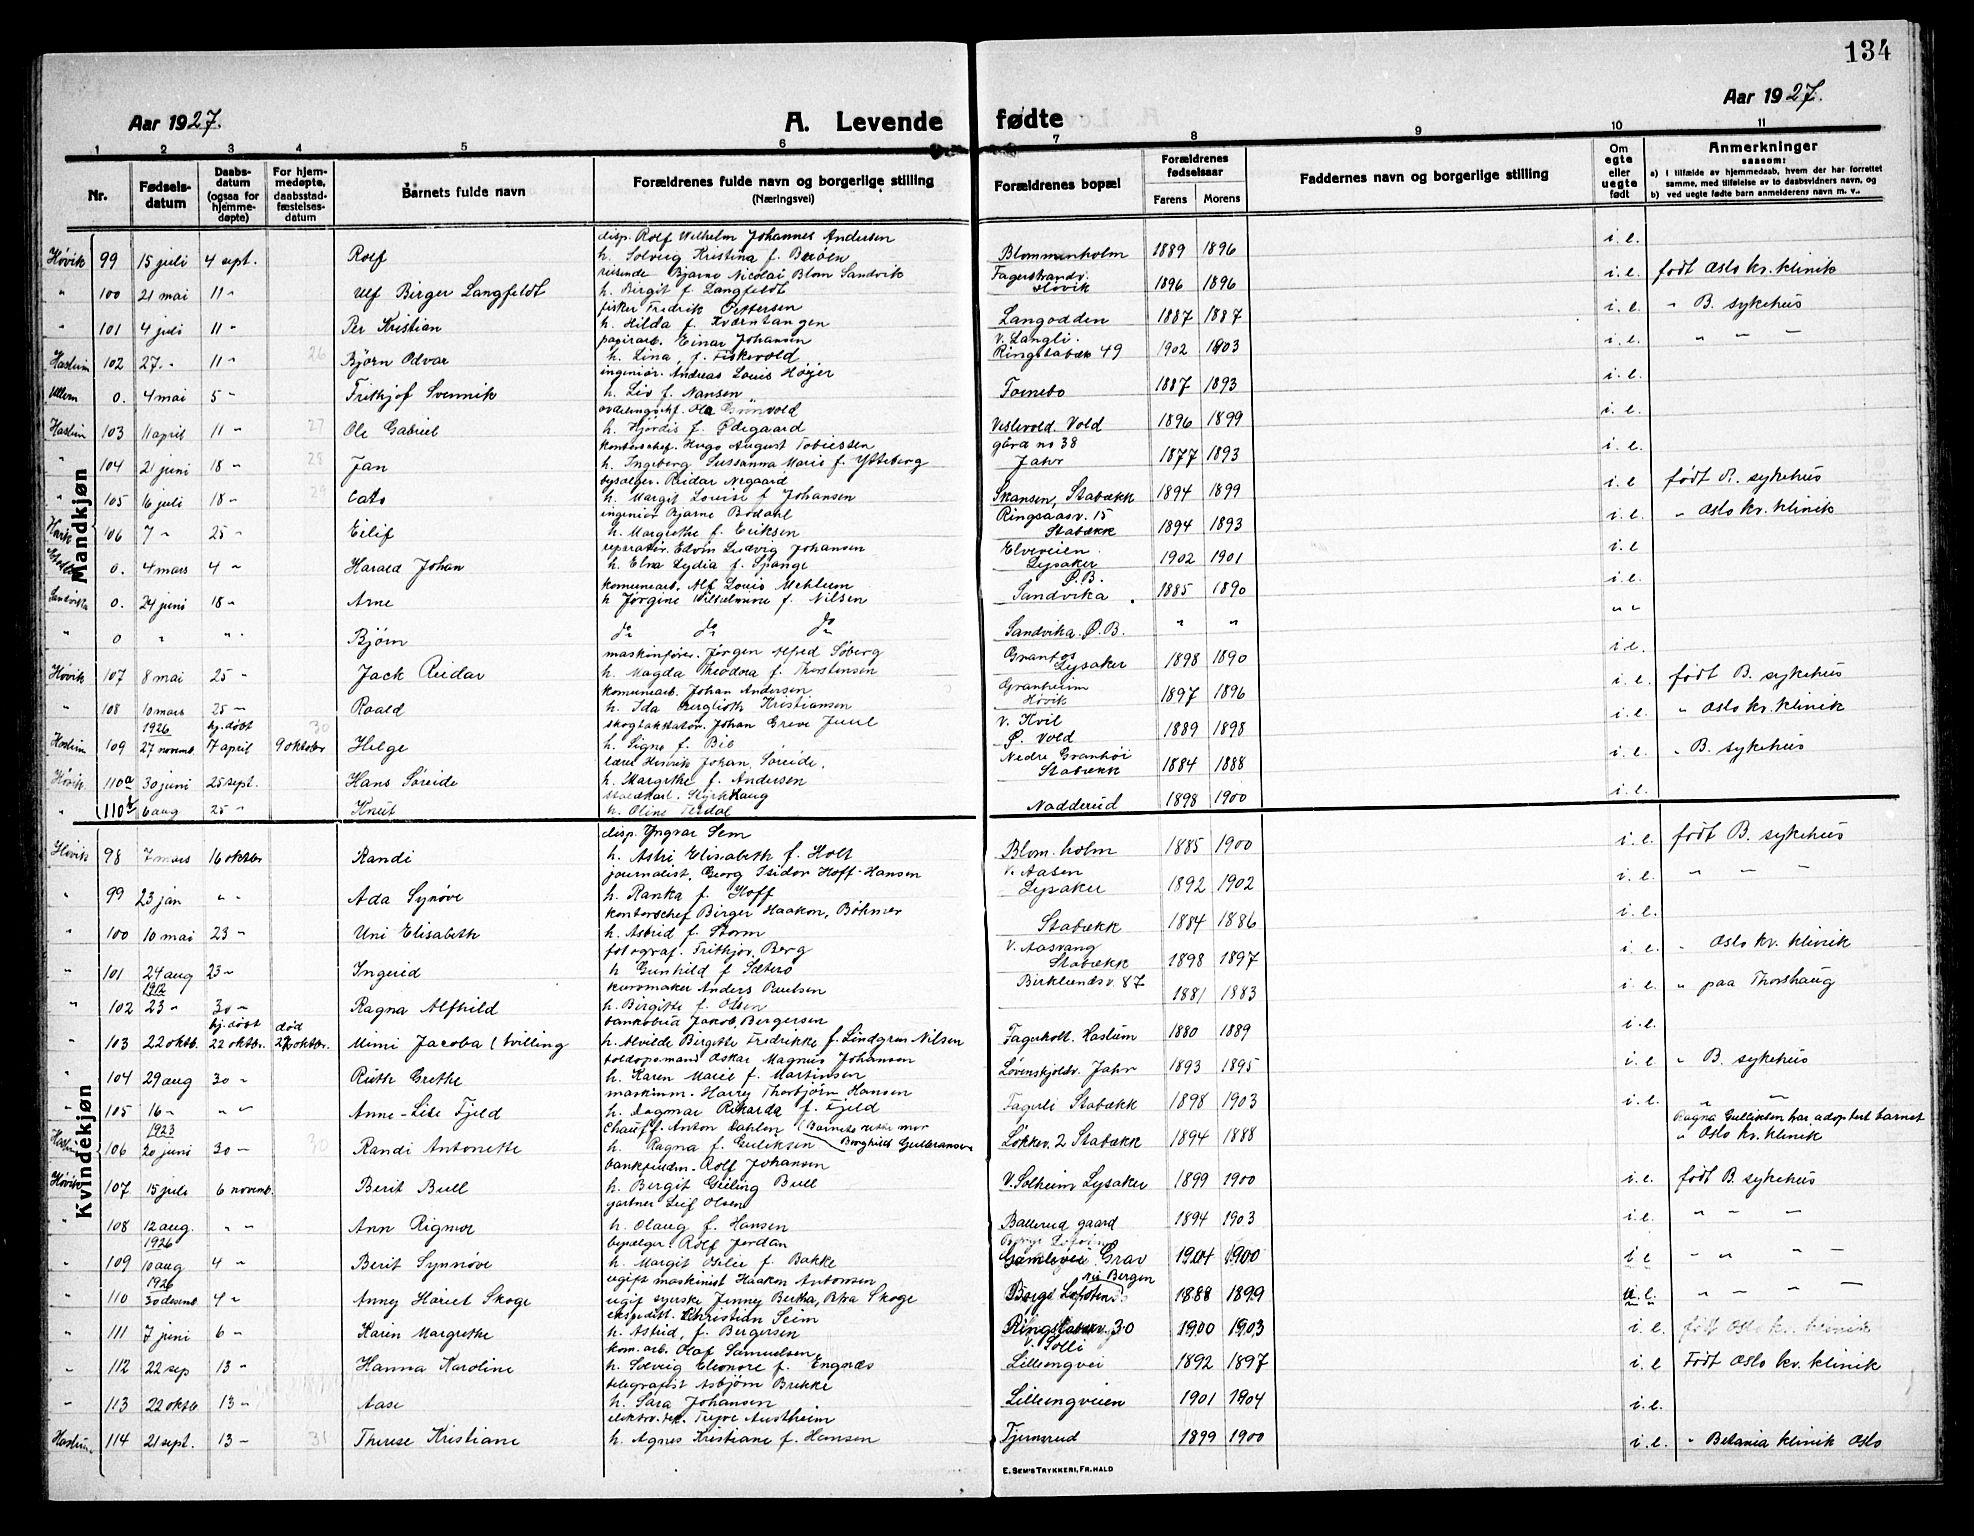 134
Aar 1927.
A. Levende
fødte
Aar 1927.
1 2 3 4 5 6 7 8 9 10 11
Nr.
Fødsels-
datum
Daabs-
datum
(ogsaa for
hjemme-
døpte)
For hjem-
medøpte,
daabsstad-
fæstelses-
datum
Barnets fulde navn
Forældrenes fulde navn og borgerlige stilling
(Næringsvei)
Forældrenes bopæl
Forældrenes
fødselsaar
Farens Morens
Faddernes navn og borgerlige stilling
Om
egte
eller
uegte
født
Anmerkninger
saasom:
a) I tilfælde av hjemmedaab, hvem der har forrettet
samme, med tilføielse av to daabsvidners navn, og
b) ved uegte fødte barn anmelderens navn m. v..
Mandkjøn
disp. Rolf Wilhelm Johannes Andersen
Høvik 99 15 juli 4 sept. Rolf h. Solveig Kristina f. Blommenholm 1889 1896 i. e.
reisende Bjarne Nicolai Blom Sandvik
" 100 21 mai 11 " Ulf Birger Langfeldt h. Birgit f. Langfeldt Fagerstrandv. Høvik 1896 1896 i. e. født Oslo kv. klinik
fisker Fredrik Pettersen
" 101 4 juli 11 " Per Kristian h. Hilda f. Kværntangen Langodden 1887 1887 i. e. " B. sykehus
papirarb. Einar Johansen
Haslum 102 27 " 11 " 26 Bjørn Odvar h. Lina, f. Fiskevold V. Langli. Ringstabæk 49 1902 1903 i. e. " " "
ingeniør. Andreas Louis Høyer
Ullern 0. 4 mai 5 " Fritkjof Svennik h. Liv f. Nansen Fornebo 1887 1893 i. e.
avdelingschf. Ola Grönvold
Haslum 103 11 april 11 " 27 Ole Gabriel h. Hjördis f. Ødegaard Veslevold. Vold 1896 1899 i. e.
kontorschef. Hugo August Tobiessen
" 104 21 juni 18 " 28 Jan h. Ingeborg Sussanna Marie f. Ytteborg gård no 38 Jahr 1877 1893 i. e.
bysælger. Reidar Negaard
" 105 6 juli 18 " Cato h. Margit Louise f. Johansen Skansen, Stabækk 1894 1899 i. e. født R. sykehus
ingeniør Bjarne Bödahl
106 7 " 25 " Eilif h. Margrethe f. Eriksen Ringsaasv. 15 Stabækk 1894 1893 i. e. " Oslo kv. klinik
reparatør. Edvin Ludvig Johansen
0. 4 mars 4 " Harald Johan h. Elna Lydia f. Spange Elveveien. Lysaker 1902 1901 i. e.
komunearb. Alf Louis Mehlum
Sandvika 0. 24 juni 18 " Arne h Jørgine Vilhelmine f. Nilsen P.B. Sandvika 1885 1890 i. e.
" 0 " " " Bjørn do do do Sandvika. P.B. " " " "
maskinfører. Jørgen Alfred Søberg
Høvik 107 8 mai 25 " Jack Reidar h. Magda Theodora f. Thorstensen Granfos Lysaker 1898 1890 i. e.
komunearb. Johan Andersen
" 108 10 mars 25 " Roald h. Ida Berglioth Kristiansen Granheim Høvik 1897 1896 i. e. født B. sykehus
1926 hj. døbt 30 skogtakstatør. Johan Greve Juul
Haslum 109 27 novemb. 7 april 9 oktober Helge h. Signe f. Bie V. Hvil P. Vold 1889 1898 i. e. " Oslo kv. klinik
lærer Henrik Johan. Søreide.
Høvik 110a 30 juni 25 sept. Hans Søreide h. Margrethe f. Andersen Nedre Granhøi Stabækk 1884 1888 i. e. " B. sykehus
" 110b 6 aug 25 " Knut h. Oline Nadderud 1898 1900 i. e.
Kvindekjøn
disp. Yngvar Sem
Høvik 98 7 mars 16 oktbr Randi h. Astri Elisabeth f. Holt Blom. holm 1885 1900 i. e. født B. sykehus
journalist, Georg Isidor Hoff-Hansen
" 99 23 jan " " Ada Synøve h. Ranka f. Hoff V. Aasen Lysaker 1892 1902 i. e. " " "
kontorschef Birger Haakon, Böhmer
" 100 10 mai 23 " Uni Elisabeth h. Astrid f. Storm Stabækk 1884 1886 i. e.
fotograf. Fritkjov, Berg
" 101 24 aug 23 " Ingerid h Gunhild f. Sætero V. Aasvang Stabækk 1898 1897 i. e. " Oslo kv. klinik
1912 kurvmaker Anders Paulsen
" 102 23 " 30 " Ragna Alfhild h. Birgitte f. Olsen Birklundsv. 87 1881 1883 i. e. " paa Thorshaug
hj. døbt død bankbud Jakob, Bergersen
" 103 22 oktb. 22 oktbr. 27 oktbr. Mimi Jacoba (tvilling h. Alvilde Birgette Fredrikke f. Lindgren Nilsen Fagerholt. Haslum 1880 1889 i. e.
toldopsmand Oskar Magnus Johansen
" 104 29 aug 30 " Ruth Grethe h. Karen Marie f. Martinsen Løvenskjoldsv. Jahr 1893 1895 i. e. " B. sykehus
maskinm. Harry Thorbjörn Hansen
" 105 16 " " " Anne-Lise Fjeld h. Dagmar Rikarda f. Fjeld Fagerli Stabækk 1898 1903 i. e. " "
1923 chauff. Anton Dahlen (Barnets rette mor Ragna Gulliksen har adoptert barnet
Haslum 106 20 juni 30 " 30 Randi Antonette h. Ragna f. Guliksen Borghild Gulbransen Løkkev. 2 Stabækk 1894 1888 " Oslo kv. klinik
bankfuldm. Rolf Johansen
Høvik 107 15 juli 6 novemb. Berit Bull h. Bergit Geiling Bull V. Solheim Lysaker 1899 1900 i. e. født B. sykehus
gartner Leif Olsen
" 108 12 aug. " " Ann Rigmor h. Olaug f. Hansen Ballerud gaard 1894 1903 i. e. " " "
1926 bysælger. Rolf Jordan
" 109 10 aug 4 " Berit Synnöve h. Margit Otilie f. Bakke Gamlevei Grav 1904 1900 i e " " "
1926 ugift maskinist Haakon Antonsen
" 110 30 desemb 4 " Anney Hariet Skoge ugif syerske Jenney Bertha, Petra Skoge ved Bergen 1888 1899 u. e. " " "
ekspedit. Christian Seim
" 111 7 juni 6 " Karen Margrethe h. Astrid, f. Bergersen Ringstabækv. 30 1900 1903 i. e. født Oslo kv. klinik
kom. arb. Olaf Samuelsen,
" 112 22 sep 13 " Hanna Karoline h. Solveig Eleonore f. Engnæs V. Solli Lillengvei 1892 1897 i. e Født Oslo kv. klinik
telegrafist Asbjørn Brekke
" 113 22 oktb 13 " Aase h. Sara Johansen Lillengveien 1901 1904 i. e.
Haslum 114 21 sept. 13 " 31 Therese Kristiane h. Agnes Kristiane f. Hansen Tjernsrud 1899 1900 i. e. " Betania klinik Oslo
E. SEM'S TRYKKERI, FR.HALD